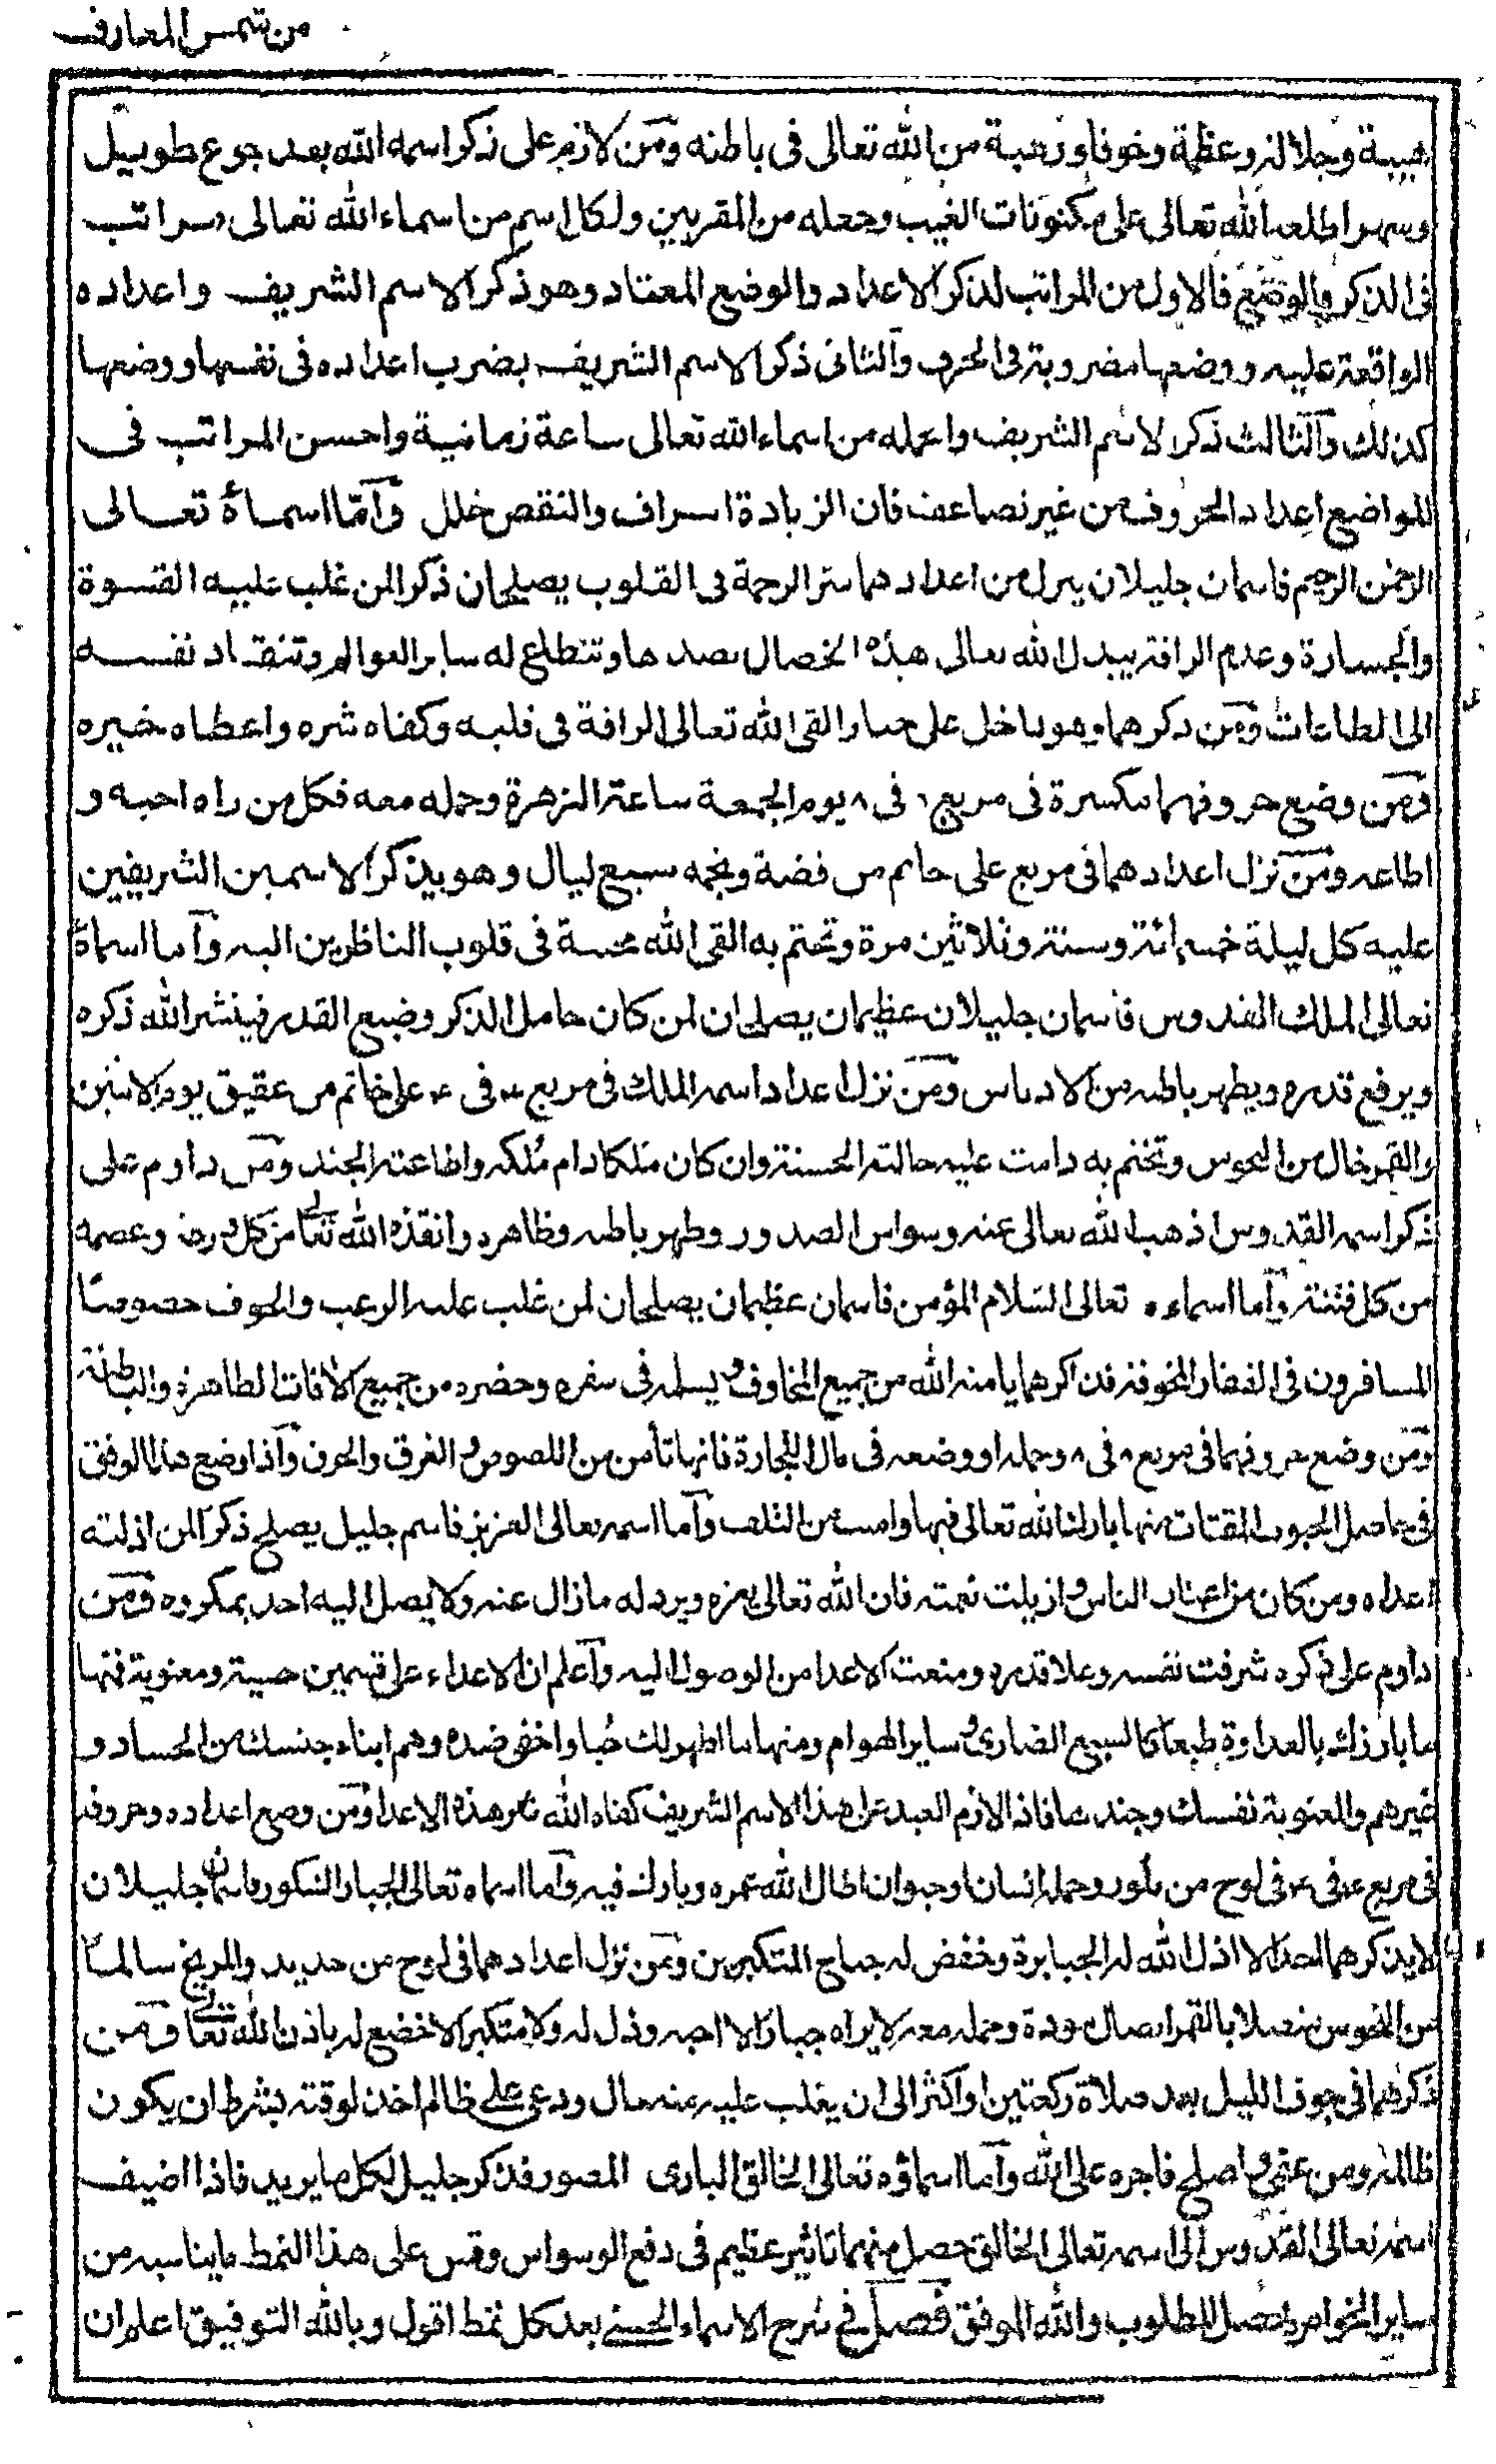 من شمس المعارف
هيبة وجلالة وعظمة وخوفا ورهبة من الله تعالى فى باطنه ومن لازم على ذكر اسمه الله بعد جوع طويل
وسهر اطلعه الله تعالى على مكنونات الغيب وجعله من المقربين ولكل اسم من اسماء الله تعالى مراتب
فى الذكر والوضع فالاول من المراتب لذكر الاعداد والوضع المعتاد وهو ذكر الاسم الشريف واعداده
الواقعة عليه ووضعها مضروبة فى الحرف والثانى ذكر الاسم الشريف بضرب اعداده فى نفسها ووضعها
كذلك والثالث ذكر الاسم الشريف واعمله من اسماء الله تعالى ساعة زمانية واحسن المراتب فى
المواضع اعداد الحروف من غير تضاعف فان الزيادة اسراف والنقص خلل واما اسماه تعالى
الرحمن الرحيم فاسمان جليلان يبرل من اعدادهما ستر الرحمة فى القلوب يصلحان ذكرا لمن غلب عليه القسوة
والجسارة وعدم الرافة يبدل الله تعالى هذه الخصال بصدها وتتطلع له ساير العوالم وتنقاد نفسه
الى الطاعات ومن ذكرهما وهو داخل على جبار القى الله تعالى الرافة فى قلبه وكفاه شره واعطاه خيره
ومن وضع حروفهما مكسرة فى مربع ٨ فى ٨ يوم الجمعة ساعة الزهرة وحمله معه فكل من راه احبه و
اطاعه ومن نزل اعدادهما فى مربع على خاتم من فضة ونجمه سبع ليال وهو يذكر الاسمين الشريفين
عليه كل ليلة خمسمائة وستة وثلاثين مرة وتختم به القى الله محبة فى قلوب الناظرين اليه واما اسماه
تعالى الملك القدوس فاسمان جليلان عظيمان يصلحان لمن كان حامل الذكر وضيع القدر فينشر الله ذكره
ويرفع قدره ويطهر باطنه من الادناس ومن نزل اعداد اسمه الملك فى مربع ٤ فى ٤ على خاتم من عقيق يوم الاثنين
والقمر خال من النحوس وتختم به دامت عليه حالته الحسنة وان كان ملكا دام ملكه واطاعته الجند ومن داوم على
ذكر اسمه القدوس اذهب الله تعالى عنه وسواس الصدور وطهر باطنه وظاهره وانقذه الله تعالى من كل وعصمه
من كل فتنة واما اسماءه تعالى السلام المؤمن فاسمان عظيمان يصلحان لمن غلب عليه الرعب والخوف خصوصا
المسافرون فى القفار المخوفة فذاكرهما يامنه الله من جميع المخاوف ويسلمه فى سفره وحضره من جميع الافات الظاهرة والباطنة
ومن وضع حروفهما فى مربع ٨ فى ٨ وحمله او وضعه فى مال التجارة فانها تأمن من اللصوص والغرق والحرق واذا وضع هذا الوفق
فى حاصل الحبوب المقتات منها بارك الله تعالى فيها وامنت من التلف واما اسمه تعالى العزيز فاسم جليل يصلح ذكرا لمن اذلته
اعداه ومن كان من اعيان الناس وازيلت نعمته فان الله تعالى يعزه ويرد له ما زال عنه ولا يصل اليه احد بمكروه ومن
داوم على ذكره شرفت نفسه وعلا قدره ومنعت الاعدا من الوصول اليه واعلم ان الاعداء على قسمين حسية ومعنوية فمنها
ما بارزك بالعداوة طبعا كالسبع الضارى وساير الهوام ومنها ما اظهر لك حبا واخفى ضده وهم ابناء جنسك من الحساد و
غيرهم والمعنوية نفسك وجندها فاذا لازم العبد على هذا الاسم الشريف كفاه الله شر هذه الاعدا ومن وضع اعداده وحروفه
فى مربع ٤ فى ٤ فى لوح من بلور وحمله انسان او حيوان اطال الله عمره وبارك فيه واما اسماه تعالى الجبار الشكور فاسمان جليلان
لا يذكرهما احدا الا اذل الله له الجبابرة وخفض له جناح المتكبرين ومن نزل اعدادهما فى لوح من حديد والمريخ سالما
من النحوس متصلا بالقمر اتصال مودة وحمله معه لا يراه جبارا الا احبه وذل له ولا متكبر الا خضع له باذن الله تعالى ومن
ذكرهما فى جوف الليل بعد صلاة ركعتين او اكثر الى ان يغلب عليه منه حال ودعى على ظالم اخذ لوقته بشرط ان يكون
ظالمه ومن عفى واصلح فاجره على الله واما اسماؤه تعالى الخالق البارى المصور فذكر جليل لكل ما يريد فاذا اضيف
اسمه تعالى القدوس الى اسمه تعالى الخالق حصل منهما تاثير عظيم فى دفع الوسواس وقس على هذا النمط ما يناسبه من
ساير الخواص يحصل المطلوب والله الموفق فصل فى شرح الاسماء الحسنى بعد كل نمط اقول وبالله التوفيق اعلم ان